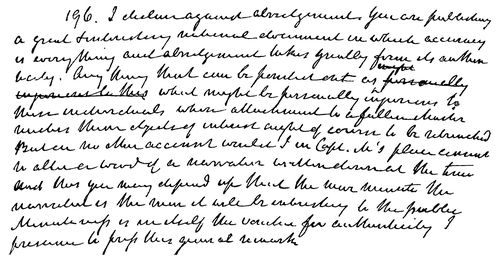 196. I declaim against abridgement. You are publishing
a great & interesting national document in which accuracy
is every thing and abridgement takes greatly from its authen
ticity. Any thing that can be pointed out as might personally
injurious to this what might be personally injurious to
those individuals whose attachment to a fallen master
makes them objects of interest ought of course to be retrenched
But on no other account would I in Capt. M's place consent
to alter a word of a narrative written down at the time
and this you may depend up that the more minute the
narrative is the more it will be interesting to the public
Minuteness is in itself the voucher for authenticity I
presume to press this general remark